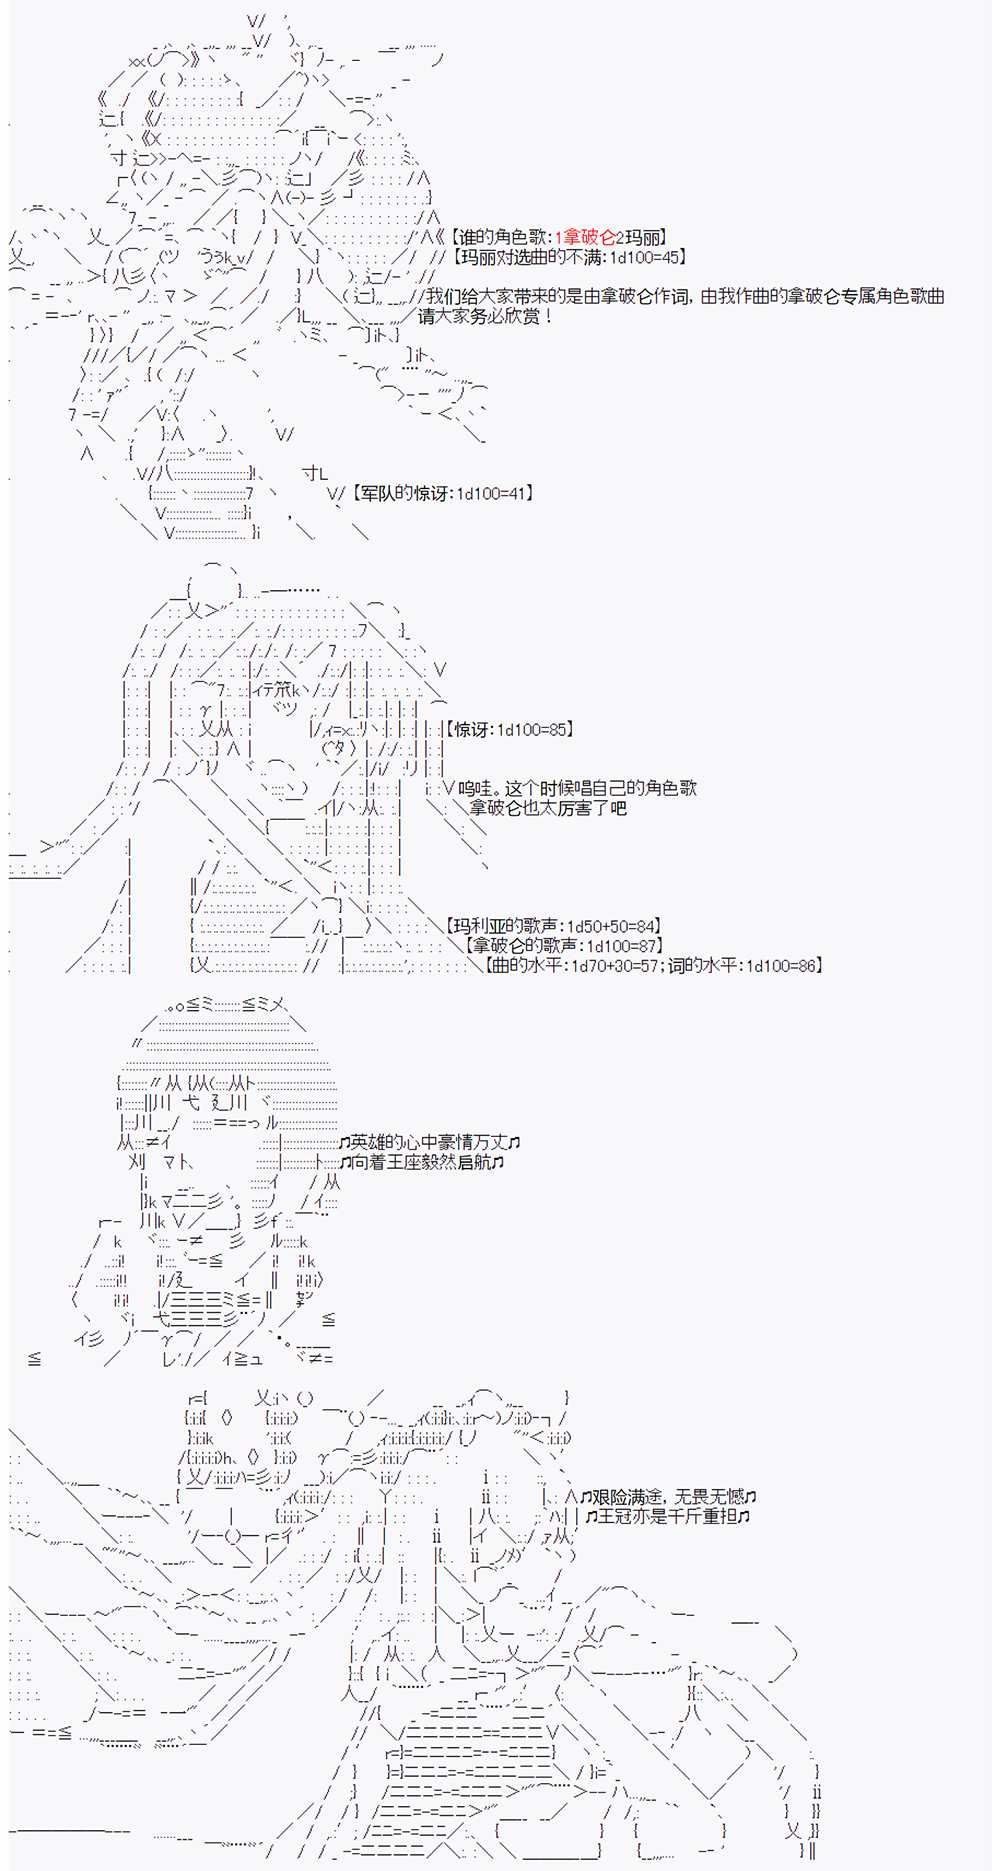 【谁的角色歌:1拿破仑2玛丽】
【玛丽对选曲的不满:1d100=45】
我们给大家带来的是由拿破仑作词，由我作曲的拿破仑专属角色歌曲
请大家务必欣赏！
【军队的惊讶:1d100=41】
【惊讶:1d100=85】
呜哇。这个时候唱自己的角色歌
拿破仑也太厉害了吧
【玛利亚的歌声:1d50+50=84】
【拿破仑的歌声:1d100=87】
【曲的水平:1d70+30=57;词的水平:1d100=86】
♫英雄的心中豪情万丈♫
♫向着王座毅然启航♫
♫艰险满途，无畏无憾♫
♫王冠亦是千斤重担♫